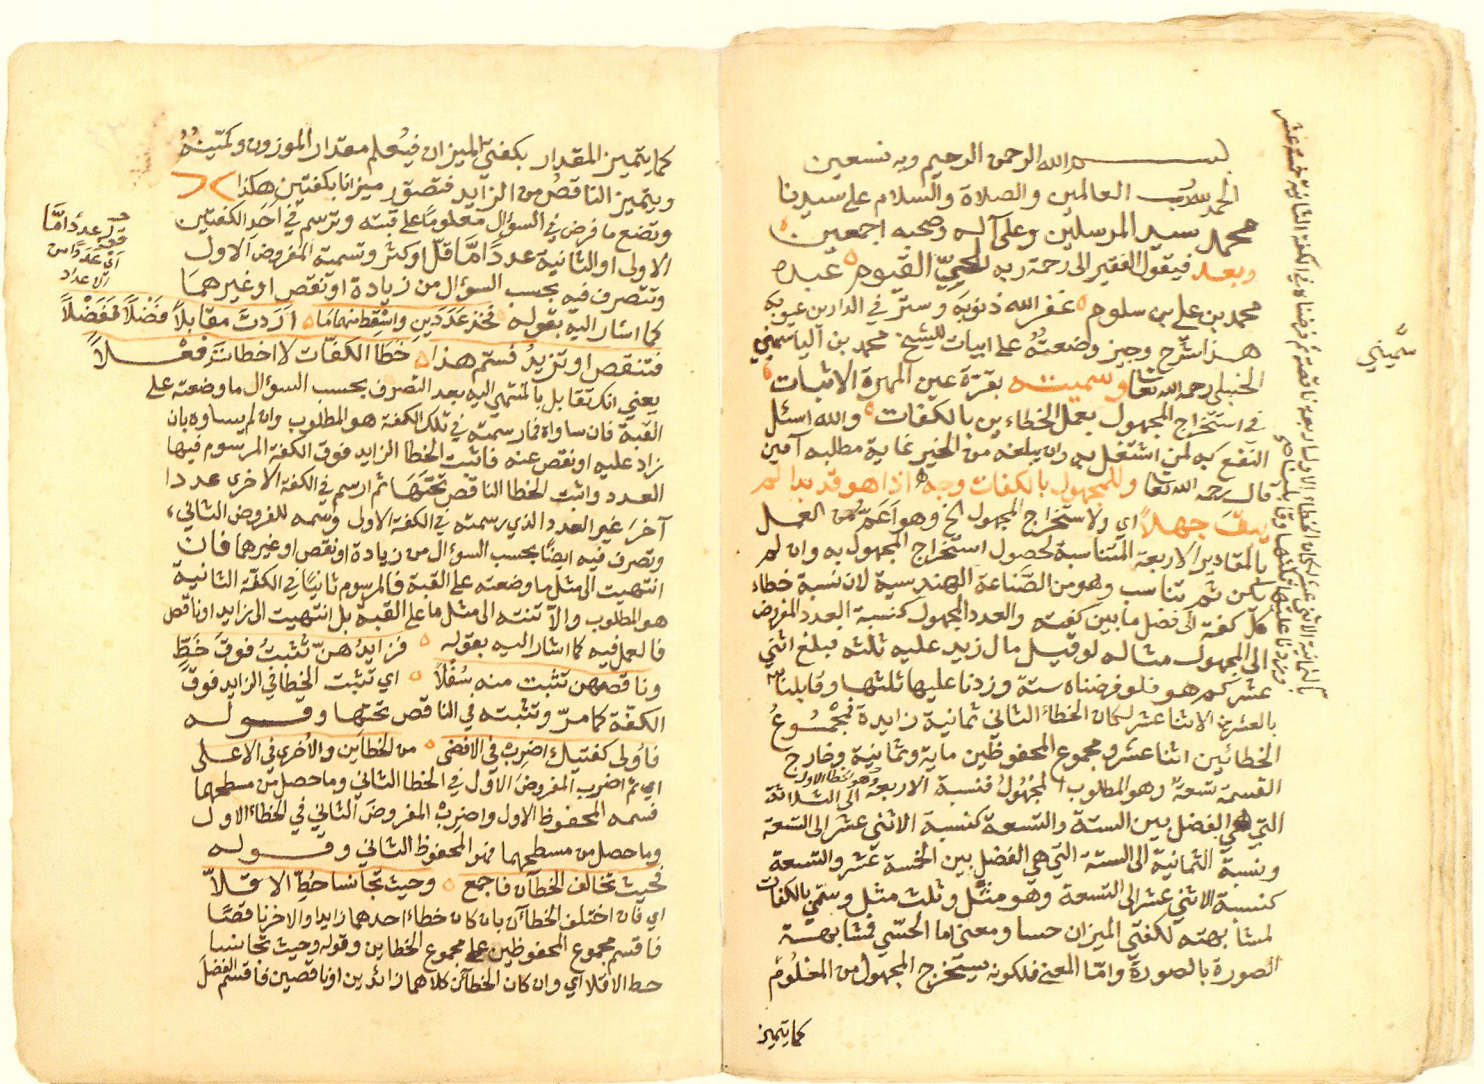 بسم الله الرحمن الرحيم وبه نستعين
الحمد لله رب العالمين والصلاة والسلام على سيدنا
محمد سيد المرسلين وعلى آله وصحبه اجمعين
وبعد فيقول الفقير الى رحمة ربه الحيّ القيوم عبده
محمد بن علي بن سلوم غفر الله ذنوبه وستر في الدارين عيوبه
هذا شرح وجيز وضعته على ابيات للشيخ محمد بن الياسميني
الحنبلي رحمه الله تعا وسميته بقرّة عين المهرة الاثبات
في استخراج المجهول بعمل الخطاءين بالكفات والله اسئل
النفع به لمن اشتغل به وان يبلغه من الخير غاية مطلبه آمين
قال رحمه الله تعا وللمجهول بالكفات وجه اذا هو قد بدا لم
يبقَ جهلاً اي ولاستخراج المجهول الخ وهو اعم من العمل
بالمقادير الاربعة المتناسبة لحصول استخراج المجهول به وان لم
يكن ثم تناسب وهو من الصناعة الهندسية لان نسبة خطاء
كل كفة الى فضل ما بين كفته والعدد المجهول كنسبة العدد المفروض
الى المجهول مثاله لو قيل مال زيد عليه ثلثه فبلغ اثني
عشر كم هو فلو فرضناه ستة وزدنا عليها ثلثها وقابلنا
بالعشرة الاثنا عشر لكان الخطاء الثاني ثمانية زايدة فمجموعُ
الخطائين اثنا عشر ومجموع المحفوظين ماية وثمانية وخارج
القسمة تسعة وهو المطلوب المجهول فنسبة الاربعة وهو الخطا الاول الى الثلاثة
التي هي الفضل بين الستة والتسعة كنسبة الاثني عشر الى التسعة
ونسبة الثمانية الى الستة التي هي الفضل بين الخمسة عشر والتسعة
كنسبة الاثني عشر الى التسعة وهو مثل وثلث مثل وسمّي بالكفات
لمشابهته لكفتي الميزان حسا ومعنى اما الحسّي فمشابهة
الصورة بالصورة وامّا المعنى فلكونه يستخرج المجهول من المعلوم
كما يتميز
كما يتميز المقدار بكفتي الميزان فيُعلم مقدار الموزون وكمّيتهُ
ويتميز الناقصُ من الزايد فتصور ميزانا بكفتين هكذا
وتضع ما فرض في السؤال معلوما على قبته وترسم في احَدِ الكفتين
الاولى او الثانية عددًا امّا قلّ او كثر وتسمّيه المفروض الاول
وتتصرف فيه بحسب السؤال من زيادة او نقص او غيرهما
كما اشار اليه بقوله فخذ عدَدَينِ واسْقِط منهما مَا اَرَدتَ مقابلاً فَضْلاً فَفَضْلاً
فتنقص او تزيدُ فسمّ هذا خطا الكفّات لا اخطاتَ فِعْلاً
يعني انك تقابل بالمنتهى اليه بعد التصرف بحسب السؤال ما وضعته على
القبة فان ساواه فما رسمته في تلك الكفة هو المطلوب وان لم يساوه بان
زاد عليه او نقص عنه فاثبت الخطا الزايد فوق الكفة المرسوم فيها
العدد واثبت الخطا الناقص تحتها ثم ارسم في الكفة الاخرى عددا
آخر غير العدد الذي رسمته في الكفة الاولى وسمه المفروض الثاني
وتصرف فيه ايضًا بحسب السؤال من زيادة او نقص او غيرهما فان
انتهيت الى مثل ما وضعته على القبة فالمرسوم ثانيًا في الكفّة الثانية
هو المطلوب والا تنته الى مثل ما على القبة بل انتهيت الى زايد او ناقص
فالعمل فيه كما اشار اليه بقوله فزايدُهنّ تثبتُ فوقَ خطٍّ
وناقصهن تثبت منه سُفْلاً اي تثبت الخطا في الزايد فوق
الكفّة كما مرّ وتثبته في الناقص تحتها وقوله
فأولى كفتيك اضربْ في الاقصى من الخطاين والاخرى في الاعلى
اي ثم اضرب المفروض الاول في الخطا الثاني وما حصل من مسطحهما
فسمه المحفوظ الاول واضربْ المفروضَ الثاني في الخطا الاول
وما حصل من مسطحهما فهو المحفوظ الثاني وقوله
فحيث تخالف الخطآن فاجمع وحيث تجانسا حُطّ الاقلاّ
اي فان اختلف الخطآن بان كان خطاء احدهما زايدا والاخر ناقصًا
فاقسم مجموع المحفوظين على مجموع الخطاين وقوله وحيث تجانسا
حط الاقلا اي وان كان الخطآن كلاهما زائدين او ناقصين فاقسم الفضل
قوله عددًا امَّا
اي عددًا من
الاعداد